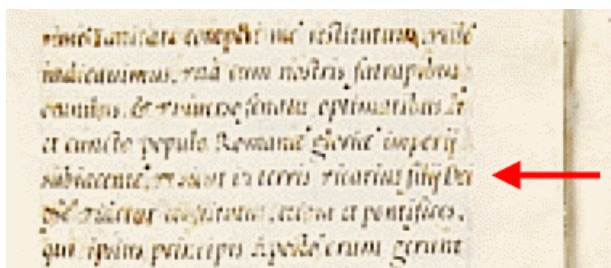 restitutum, vtile
iudicauimus, vnà cum nostris satrapibus
omnibus, & vniuerso senatu, optimatibus &
et cuncto populo Romane glorie imperij
subiacente, vt sicut in terris vicarius filij Dei
esse videtur constitutus, etiam et pontifices,
qui ipsius principis Apostolorum gerunt